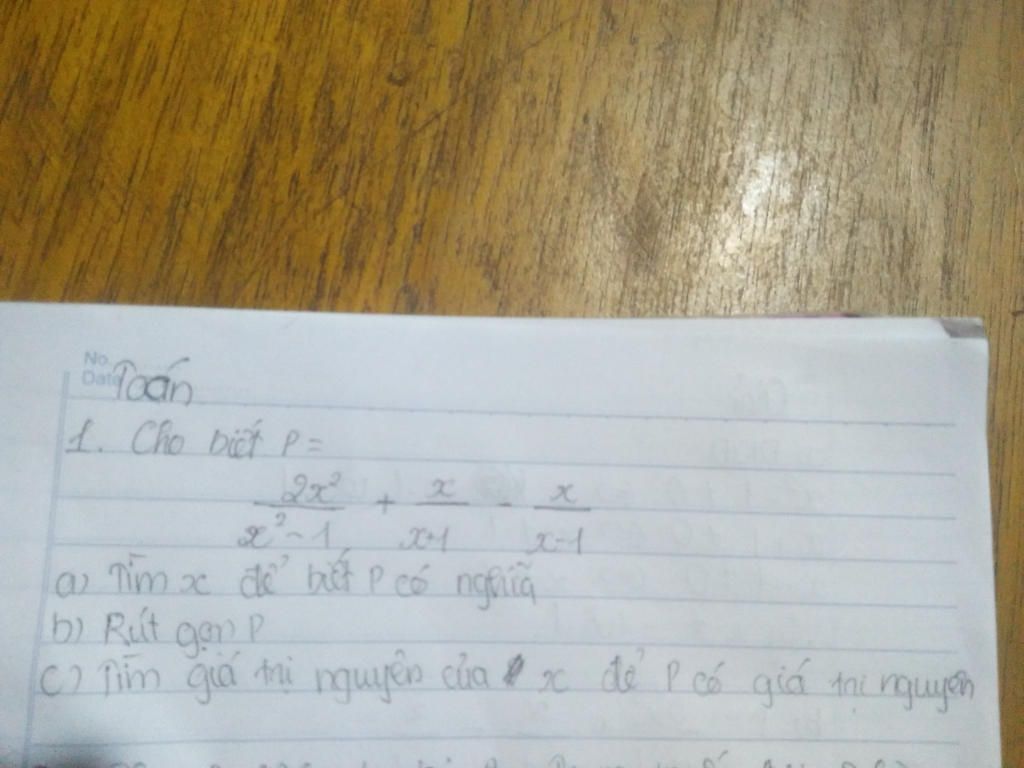 No.
Date
Toán
1. Cho biết P =
2x²/x² - 1 + x/x+1 - x/x-1
a) Tìm x để biết P có nghĩa
b) Rút gọn P
c) Tìm giá trị nguyên của x để P có giá trị nguyên